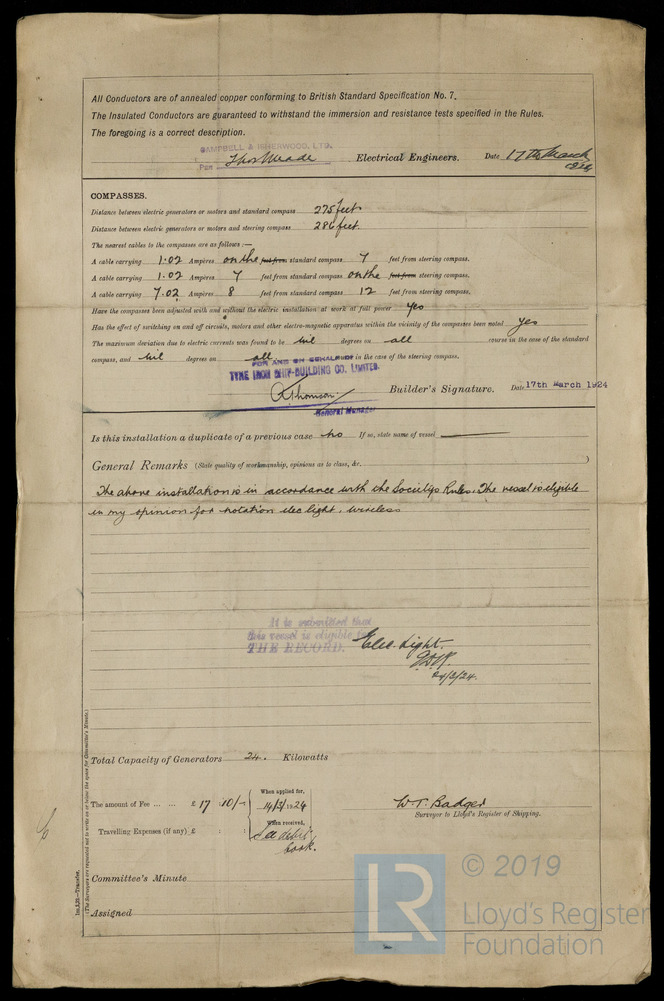 All Conductors are of annealed copper conforming to British Standard Specification No. 7.
The Insulated Conductors are guaranteed to withstand the immersion and resistance tests specified in the Rules.
The foregoing is a correct description.
CAMPBELL & ISHERWOOD, LTD.
Per Thos Meade Electrical Engineers. Date 17th March 1924
COMPASSES.
Distance between electric generators or motors and standard compass 275 feet
Distance between electric generators or motors and steering compass 286 feet.
The nearest cables to the compasses are as follows:—
A cable carrying 1.02 Ampères on the feet from standard compass 7 feet from steering compass.
A cable carrying 1.02 Ampères 7 feet from standard compass on the feet from steering compass.
A cable carrying 7.02 Ampères 8 feet from standard compass 12 feet from steering compass.
Have the compasses been adjusted with and without the electric installation at work at full power yes
Has the effect of switching on and off circuits, motors and other electro-magnetic apparatus within the vicinity of the compasses been noted yes
The maximum deviation due to electric currents was found to be nil degrees on all course in the case of the standard
compass, and nil degrees on all in the case of the steering compass.
FOR AND ON BEHALF OF
TYNE IRON SHIP-BUILDING CO. LIMITED.
Thomson Builder's Signature. Date 17th March 1924
General Manager
Is this installation a duplicate of a previous case no If so, state name of vessel
General Remarks (State quality of workmanship, opinions as to class, &c. )
The above installation is in accordance with the Society's Rules. The vessel is eligible
in my opinion for notation elec light, wireless
It is submitted that
this vessel is eligible for
THE RECORD. Elec. Light.
24/3/24.
Total Capacity of Generators 24. Kilowatts
The amount of Fee ... ... £ 17 : 10/- : When applied for, 14/3/1924
When received,
Travelling Expenses (if any) £ : :
book.
W. T. Badger
Surveyor to Lloyd's Register of Shipping.
Committee's Minute
Assigned
1m.1.22.—Transfer.
(The Surveyors are requested not to write on or below the space for Committee's Minute.)
LR
© 2019
Lloyd's Register
Foundation